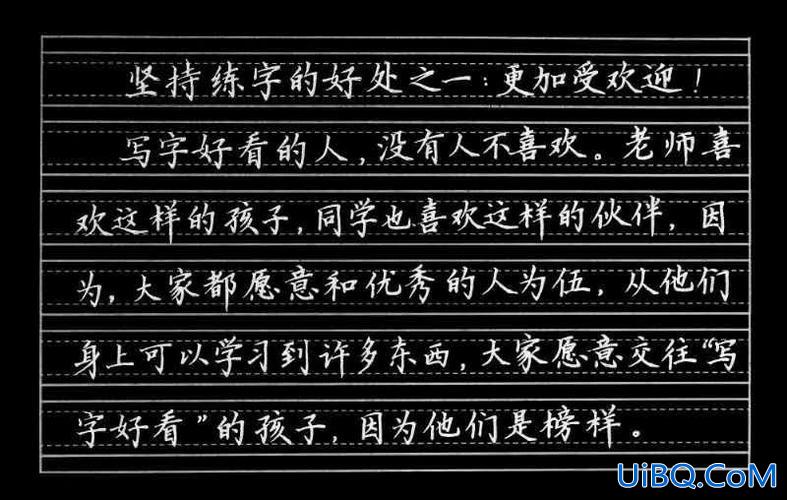 坚持练字的好处之一：更加受欢迎！
写字好看的人，没有人不喜欢。老师喜
欢这样的孩子，同学也喜欢这样的伙伴，因
为，大家都愿意和优秀的人为伍，从他们
身上可以学习到许多东西，大家愿意交往“写
字好看”的孩子，因为他们是榜样。
UiBQ.CoM